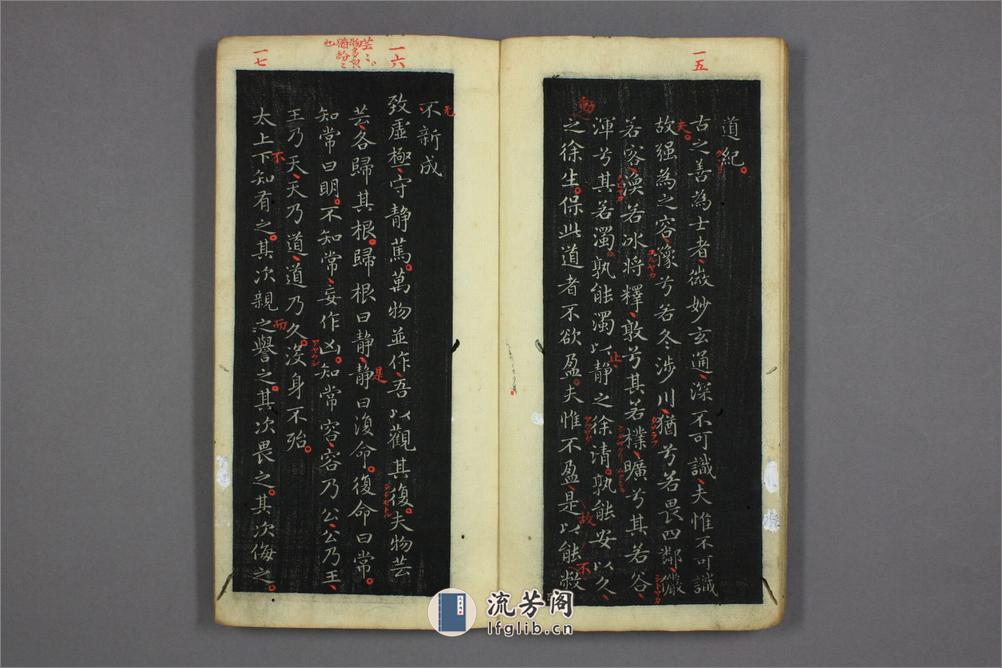 一五
道紀。
古之善為士者微妙玄通深不可識夫惟不可識
夫
故强為之容豫兮若冬涉川猶兮若畏四鄰儼
若容渙若冰將釋敦兮其若樸曠兮其若谷
渾兮其若濁孰能濁以静之徐清孰能安以久
止
動
之徐生保此道者不欲盈夫惟不盈是以能敝
故
不
一六
无
不新成
致虛極守静篤萬物並作吾以觀其復夫物芸
芸各歸其根歸根曰静静曰復命復命曰常
是
知常曰明不知常妄作凶知常容容乃公公乃王
王乃天天乃道道乃久没身不殆
一七
不
太上下知有之其次親之譽之其次畏之其次侮之
而
流芳阁
lfglib.cn